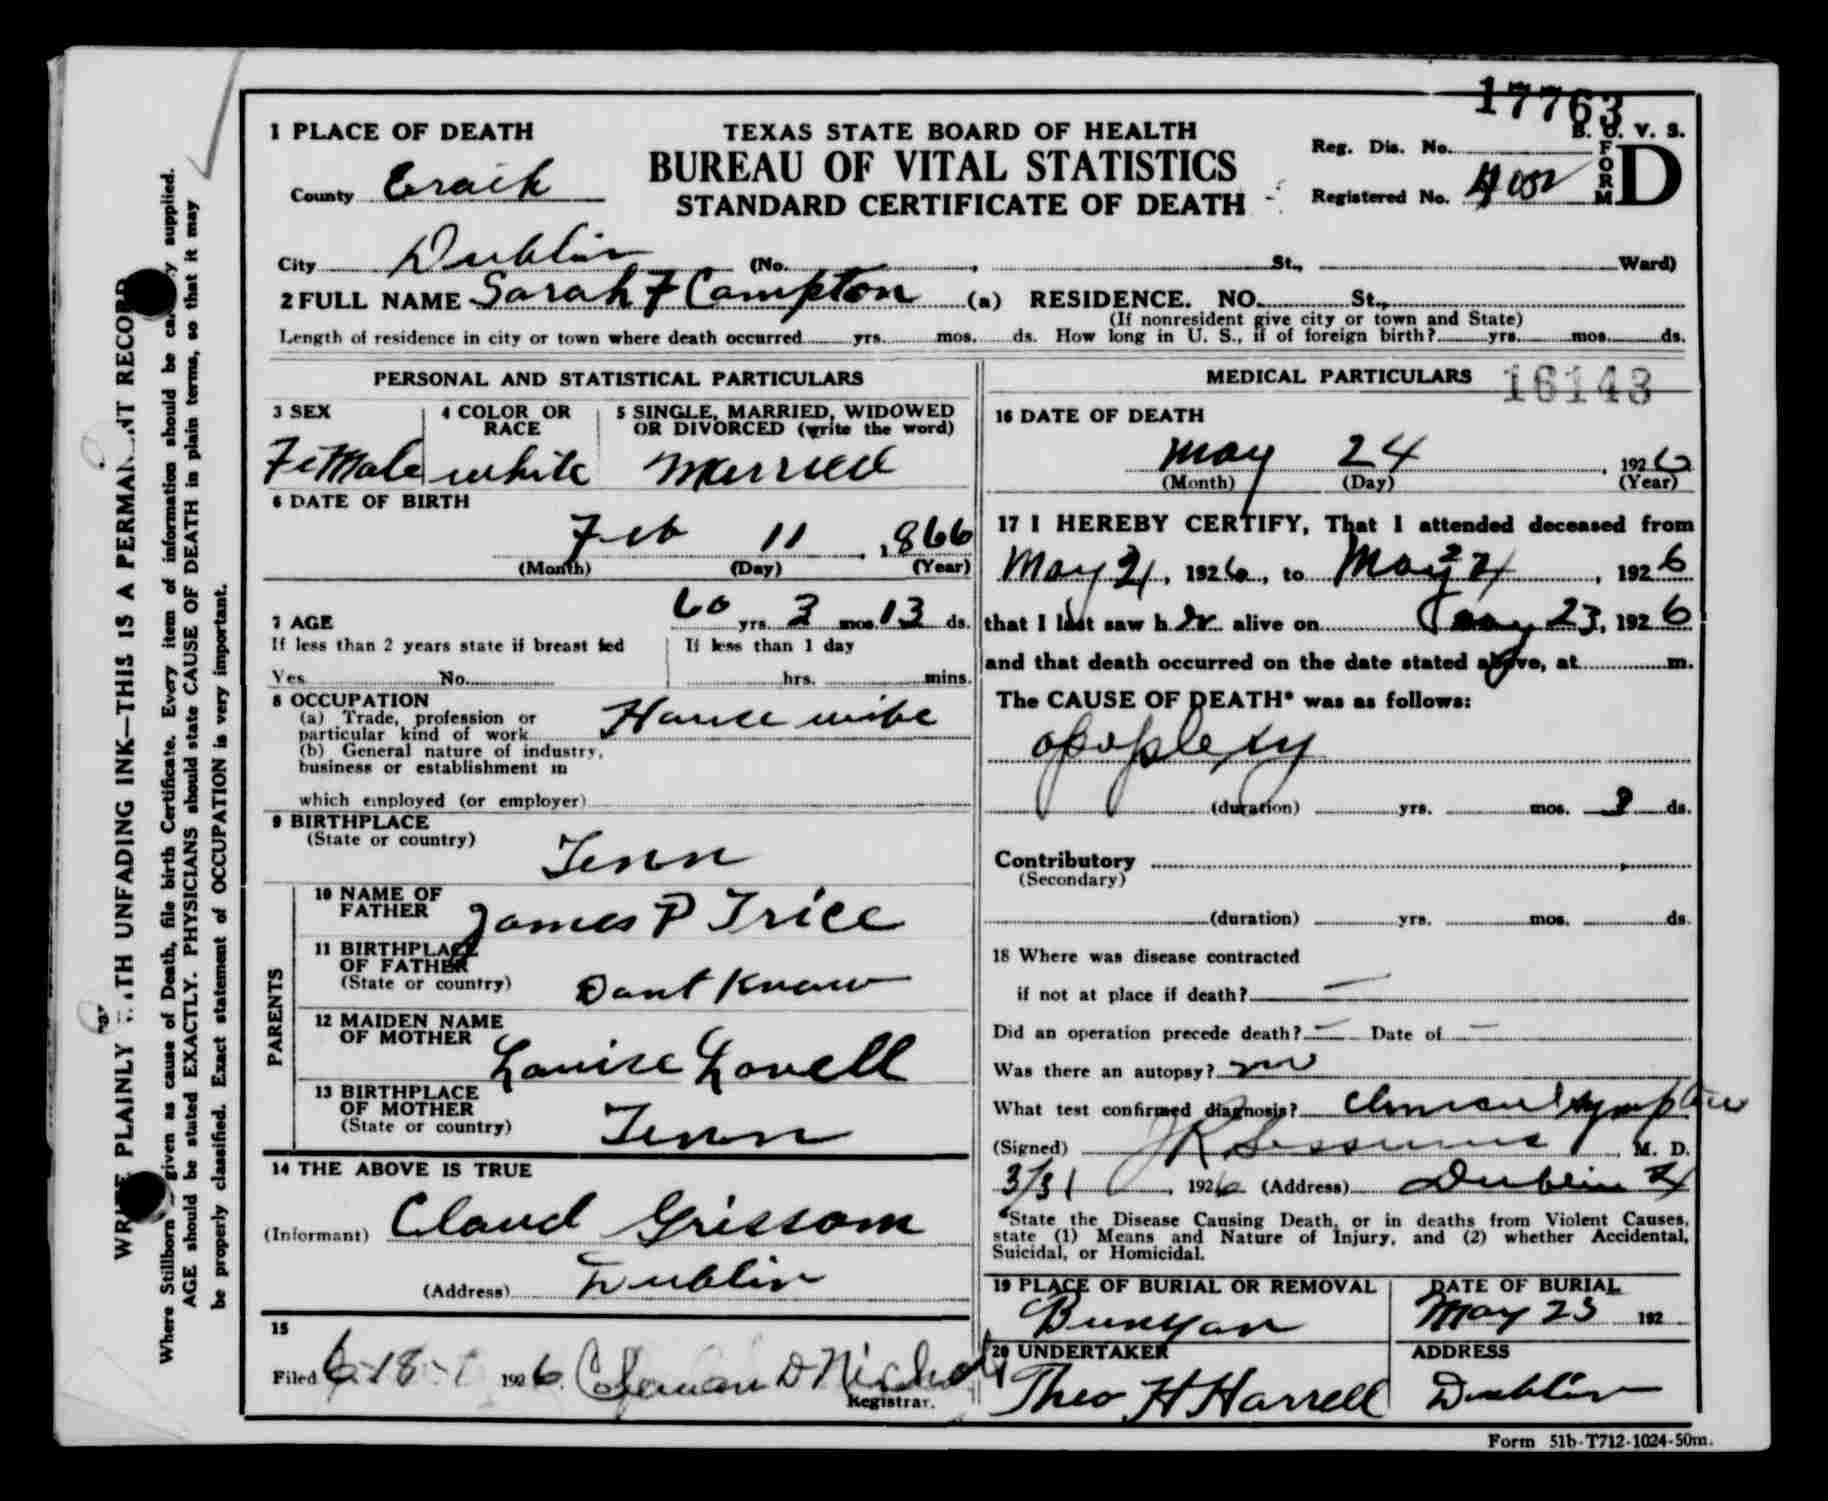 17763
1 PLACE OF DEATH
TEXAS STATE BOARD OF HEALTH
B. O. V. S.
BUREAU OF VITAL STATISTICS
Reg. Dis. No.
FORM D
County Erath
STANDARD CERTIFICATE OF DEATH
Registered No.
City Dublin (No. , St., Ward)
2 FULL NAME Sarah F Campton (a) RESIDENCE. NO. St.,
(If nonresident give city or town and State)
Length of residence in city or town where death occurred yrs. mos. ds. How long in U. S., if of foreign birth? yrs. mos. ds.
PERSONAL AND STATISTICAL PARTICULARS
3 SEX
Female
4 COLOR OR RACE
white
5 SINGLE, MARRIED, WIDOWED
OR DIVORCED (write the word)
Married
6 DATE OF BIRTH
Feb 11, 1866
(Month) (Day) (Year)
7 AGE 60 yrs. 3 mos. 13 ds.
If less than 2 years state if breast fed
Yes No
If less than 1 day
hrs. mins.
8 OCCUPATION
(a) Trade, profession or
particular kind of work House wife
(b) General nature of industry,
business or establishment in
which employed (or employer)
9 BIRTHPLACE
(State or country)
Tenn
PARENTS
10 NAME OF
FATHER James P Trice
11 BIRTHPLACE
OF FATHER
(State or country) Dont Know
12 MAIDEN NAME
OF MOTHER Louise Lovell
13 BIRTHPLACE
OF MOTHER
(State or country) Tenn
14 THE ABOVE IS TRUE
(Informant) Claud Grissom
(Address) Dublin
15
Filed 6-18- 1926. Coleman D Nichols
Registrar.
MEDICAL PARTICULARS 16143
16 DATE OF DEATH
May 24, 1926
(Month) (Day) (Year)
17 I HEREBY CERTIFY, That I attended deceased from
May 21, 1926, to May 24, 1926
that I last saw her alive on May 23, 1926
and that death occurred on the date stated above, at m.
The CAUSE OF DEATH* was as follows:
apoplexy
(duration) yrs. mos. 3 ds.
Contributory
(Secondary)
(duration) yrs. mos. ds.
18 Where was disease contracted
if not at place if death? —
Did an operation precede death? — Date of —
Was there an autopsy? no
What test confirmed diagnosis? clinical symptoms
(Signed) J R Sessums, M. D.
3/31, 1926 (Address) Dublin Tx
*State the Disease Causing Death, or in deaths from Violent Causes,
state (1) Means and Nature of Injury, and (2) whether Accidental,
Suicidal, or Homicidal.
19 PLACE OF BURIAL OR REMOVAL
Bunyan
DATE OF BURIAL
May 25 192
20 UNDERTAKER
Theo H Harrell
ADDRESS
Dublin
Form 51b-T712-1024-50m.
WRITE PLAINLY WITH UNFADING INK—THIS IS A PERMANENT RECORD
Where Stillborn given as cause of Death, file birth Certificate. Every item of information should be carefully supplied.
AGE should be stated EXACTLY. PHYSICIANS should state CAUSE OF DEATH in plain terms, so that it may
be properly classified. Exact statement of OCCUPATION is very important.